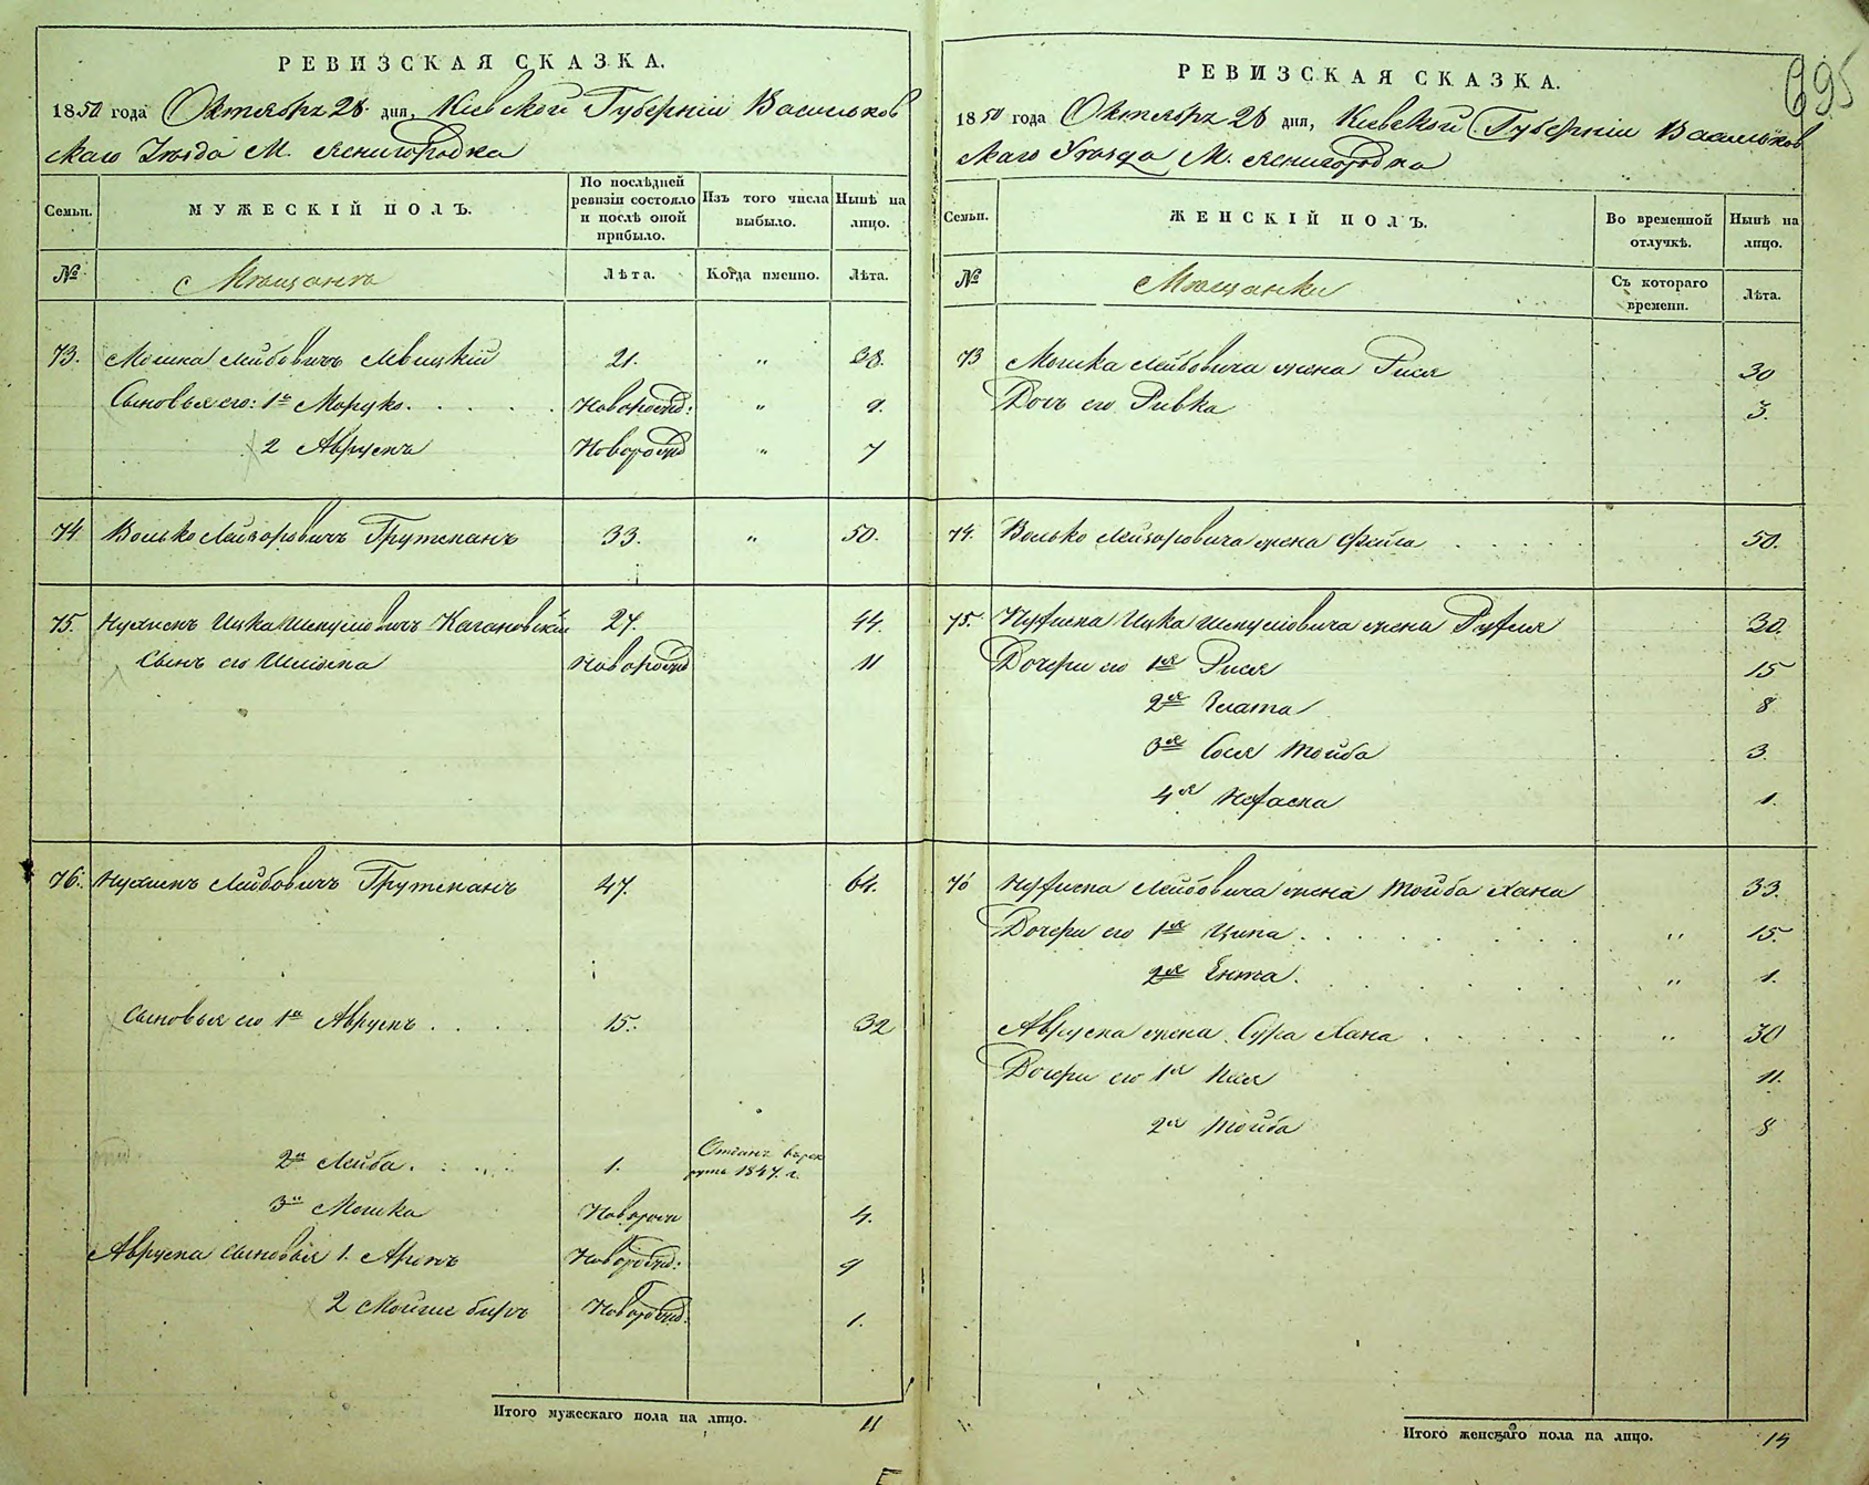 695
РЕВИЗСКАЯ СКАЗКА.
1850 года Октября 28 дня, Кіевской Губерніи Васильков
скаго Уезда М. Ясногородка
Семьи. МУЖЕСКІЙ ПОЛЪ. По послѣдней ревизіи состояло и послѣ оной прибыло. Изъ того числа выбыло. Нынѣ на лицо.
№ Мещанъ Лѣта. Когда именно. Лѣта.
73. Мошка Лейбовичъ Левицкій 21. " 38.
Сыновья его: 1й Мордко Новорожд: " 9.
2 Аврумъ Новорожд " 7
74 Волько Лейзоровичъ Грутманъ 33. " 50.
75. Нухимъ Ицка Шмулиовичъ Кагановскій 27. 44.
Сынъ его Шліома Новорожд 11
76. Нухимъ Лейбовичъ Грутманъ 47. 64.
Сыновья его 1й Аврумъ 15. 32
2й Лейба 1. Отданъ в рек
руты 1847. г.
3й Мошка Новорож 4.
Аврума сыновья 1. Аронъ Новорожд: 9
2 Мойше Беръ Новорожд: 1.
Итого мужескаго пола на лицо. 11
РЕВИЗСКАЯ СКАЗКА.
1850 года Октября 28 дня, Кіевской Губерніи Васильков
скаго Уезда М. Ясногородка
Семьи. ЖЕНСКІЙ ПОЛЪ. Во временной отлучкѣ. Нынѣ на лицо.
№ Мещанки Съ котораго времени. Лѣта.
73 Мошка Лейбовича жена Рися 30
Дочь его Ривка 3.
74. Волько Лейзоровича жена Фейга 50.
75. Нухима Ицка Шмулиовича жена Рухля 30.
Дочери его 1я Рися 15
2я Злата 8
3я Сося Тойба 3.
4я Нехама 1.
76 Нухима Лейбовича жена Тойба Хана 33.
Дочери его 1я Ципа " 15.
2я Ента " 1.
Аврума жена Сура Хана " 30
Дочери его 1я 11.
2я Тойба 8
Итого женскаго пола на лицо. 14